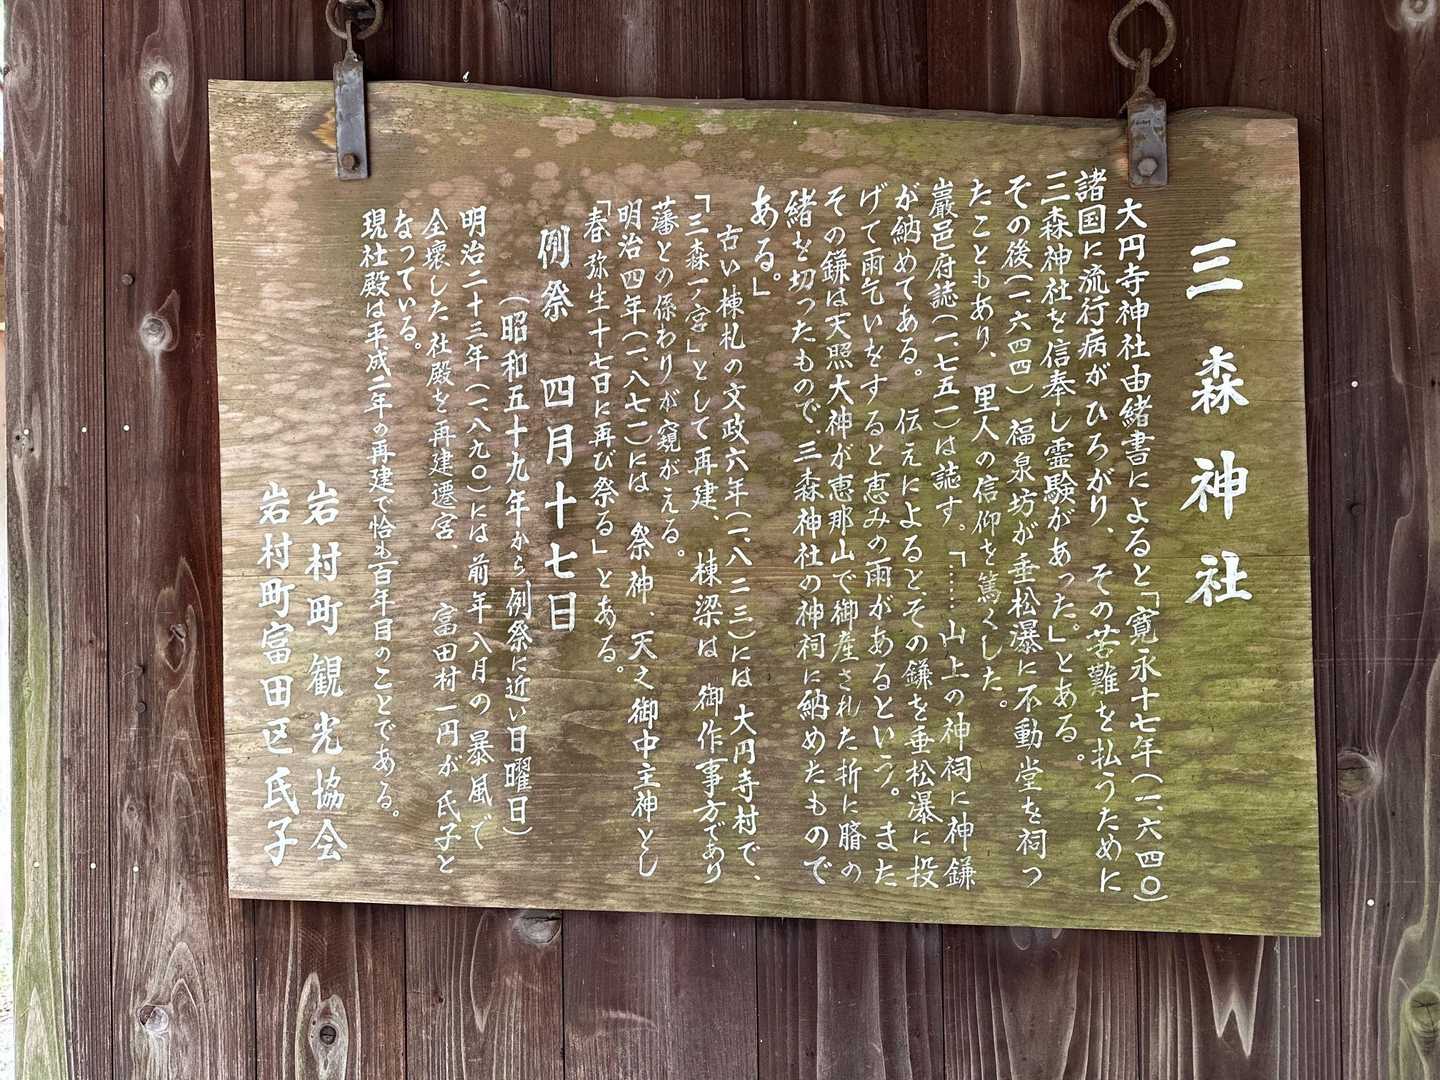 三森神社
大円寺神社由緒書によると「寛永十七年（一、六四〇）
諸国に流行病がひろがり、その苦難を払うために
三森神社を信奉し霊験があった。」とある。
その後（一、六四四）福泉坊が垂松瀑に不動堂を祠っ
たこともあり、里人の信仰を篤くした。
巌邑府誌（一、七五一）は誌す。「……山上の神祠に神鎌
が納めてある。伝えによると、その鎌を垂松瀑に投
げて雨乞いをすると恵みの雨があるという。また
その鎌は天照大神が恵那山で御産された折に臍の
緒を切ったもので、三森神社の神祠に納めたもので
ある。」
古い棟札の文政六年（一、八二三）には大円寺村で、
「三森一ノ宮」として再建、棟梁は御作事方であり
藩との係わりが窺がえる。
明治四年（一、八七一）には祭神、天之御中主神とし
「春弥生十七日に再び祭る」とある。
例祭　四月十七日
（昭和五十九年から例祭に近い日曜日）
明治二十三年（一、八九〇）には前年八月の暴風で
全壊した社殿を再建遷宮、富田村一円が氏子と
なっている。
現社殿は平成二年の再建で恰も百年目のことである。
岩村町観光協会
岩村町富田区氏子